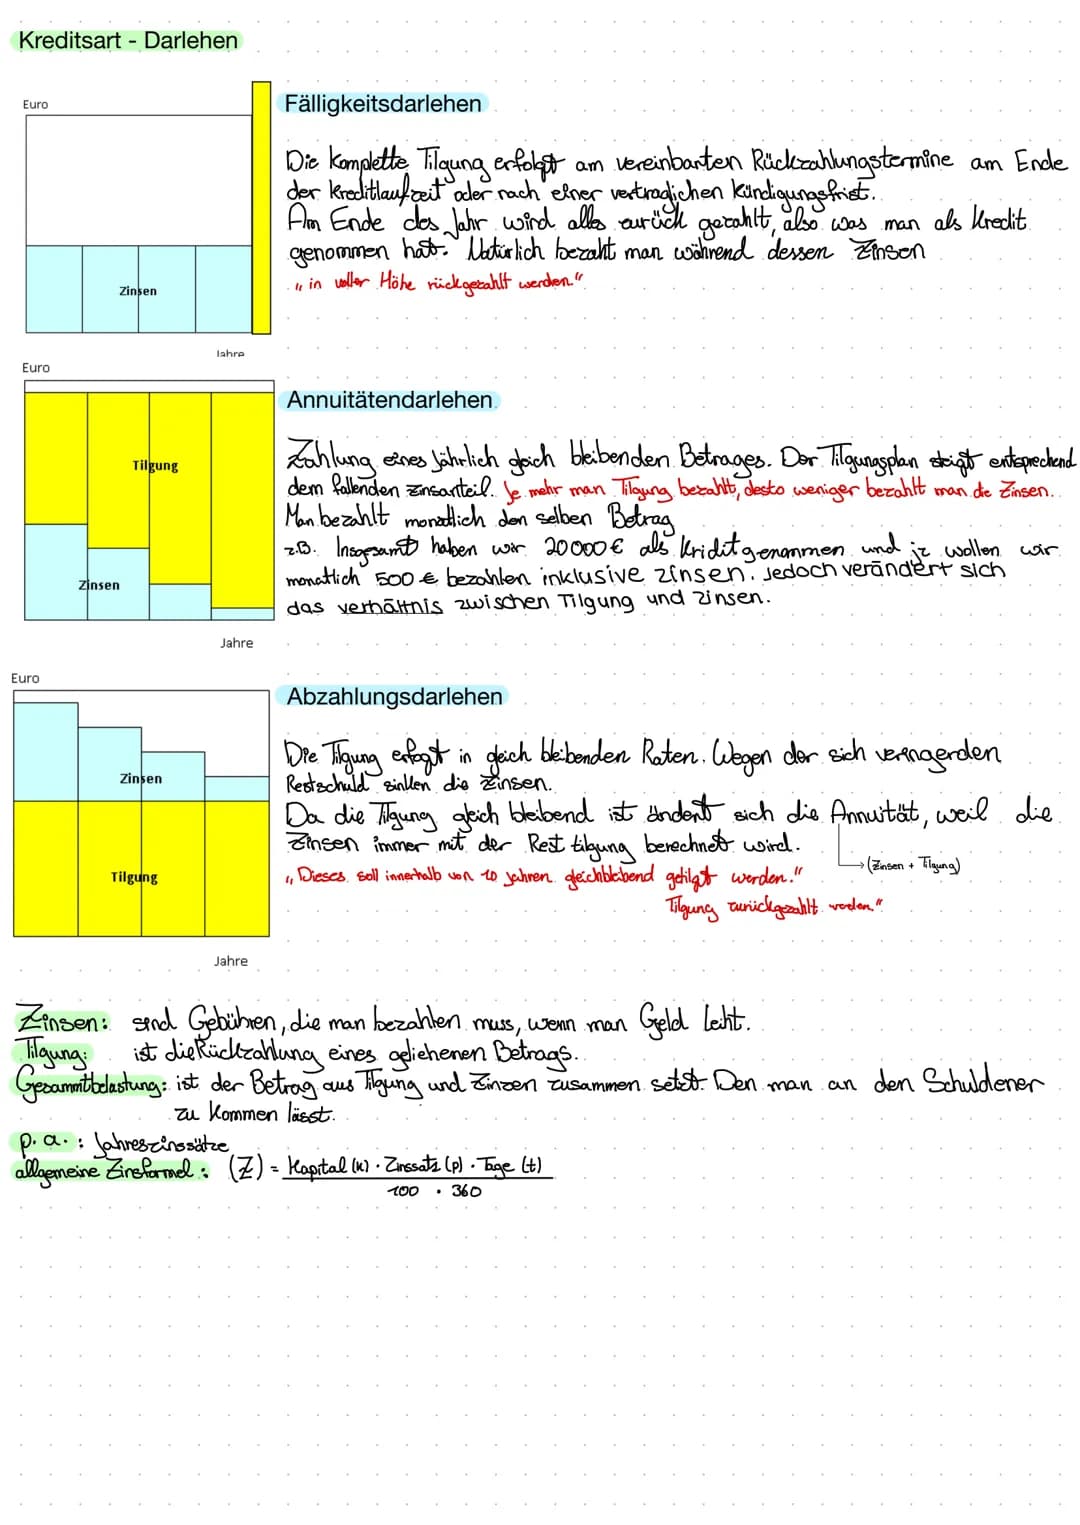 Kreditsart - Darlehen
Euro
Zinsen
Jahre
Fälligkeitsdarlehen
Die komplette Tilgung erfolgt am vereinbarten Rückzahlungstermine am Ende
der Kreditlaufzeit oder nach einer vertraglichen Kündigungsfrist.
Am Ende des Jahr wird alles zurück gezahlt, also was man als Kredit
genommen hat. Natürlich bezaht man während dessen Zinsen
„ in voller Höhe rückgezahlt werden."
Euro
Tilgung
Zinsen
Jahre
Annuitätendarlehen
Zahlung eines jährlich gleich bleibenden Betrages. Der Tilgungsplan steigt entsprechend
dem fallenden Zinsanteil. Je mehr man Tilgung bezahlt, desto weniger bezahlt man die Zinsen.
Man bezahlt monatlich den selben Betrag
z.B. Insgesamt haben wir 20000€ als Kridit genommen und jz wollen wir
monatlich 500 € bezahlen inklusive zinsen. Jedoch verändert sich
das verhältnis zwischen Tilgung und zinsen.
Euro
Zinsen
Tilgung
Jahre
Abzahlungsdarlehen
Die Tilgung erfogt in gleich bleibenden Raten. Wegen der sich veringerden
Restschuld sinken die Zinsen.
Da die Tilgung gleich bleibend ist ändert sich die Annuität, weil die
Zinsen immer mit der Rest tilgung berechnet wird.
→ (Zinsen + Tilgung)
„ Dieses soll innerhalb von 10 Jahren gleichbleibend getilgt werden."
Tilgung zurückgezahlt werden."
Zinsen: sind Gebühren, die man bezahlen muss, wenn man Geld leiht.
Tilgung: ist die Rückzahlung eines geliehenen Betrags.
Gesammtbelastung: ist der Betrag aus Tilgung und Zinzen zusammen setzt. Den man an den Schuldener
zu kommen lässt.
p. a. : Jahreszinssätze
allgemeine Zinsformel : (Z) = Kapital (K) · Zinssatz (p) · Tage (t)
100 · 360